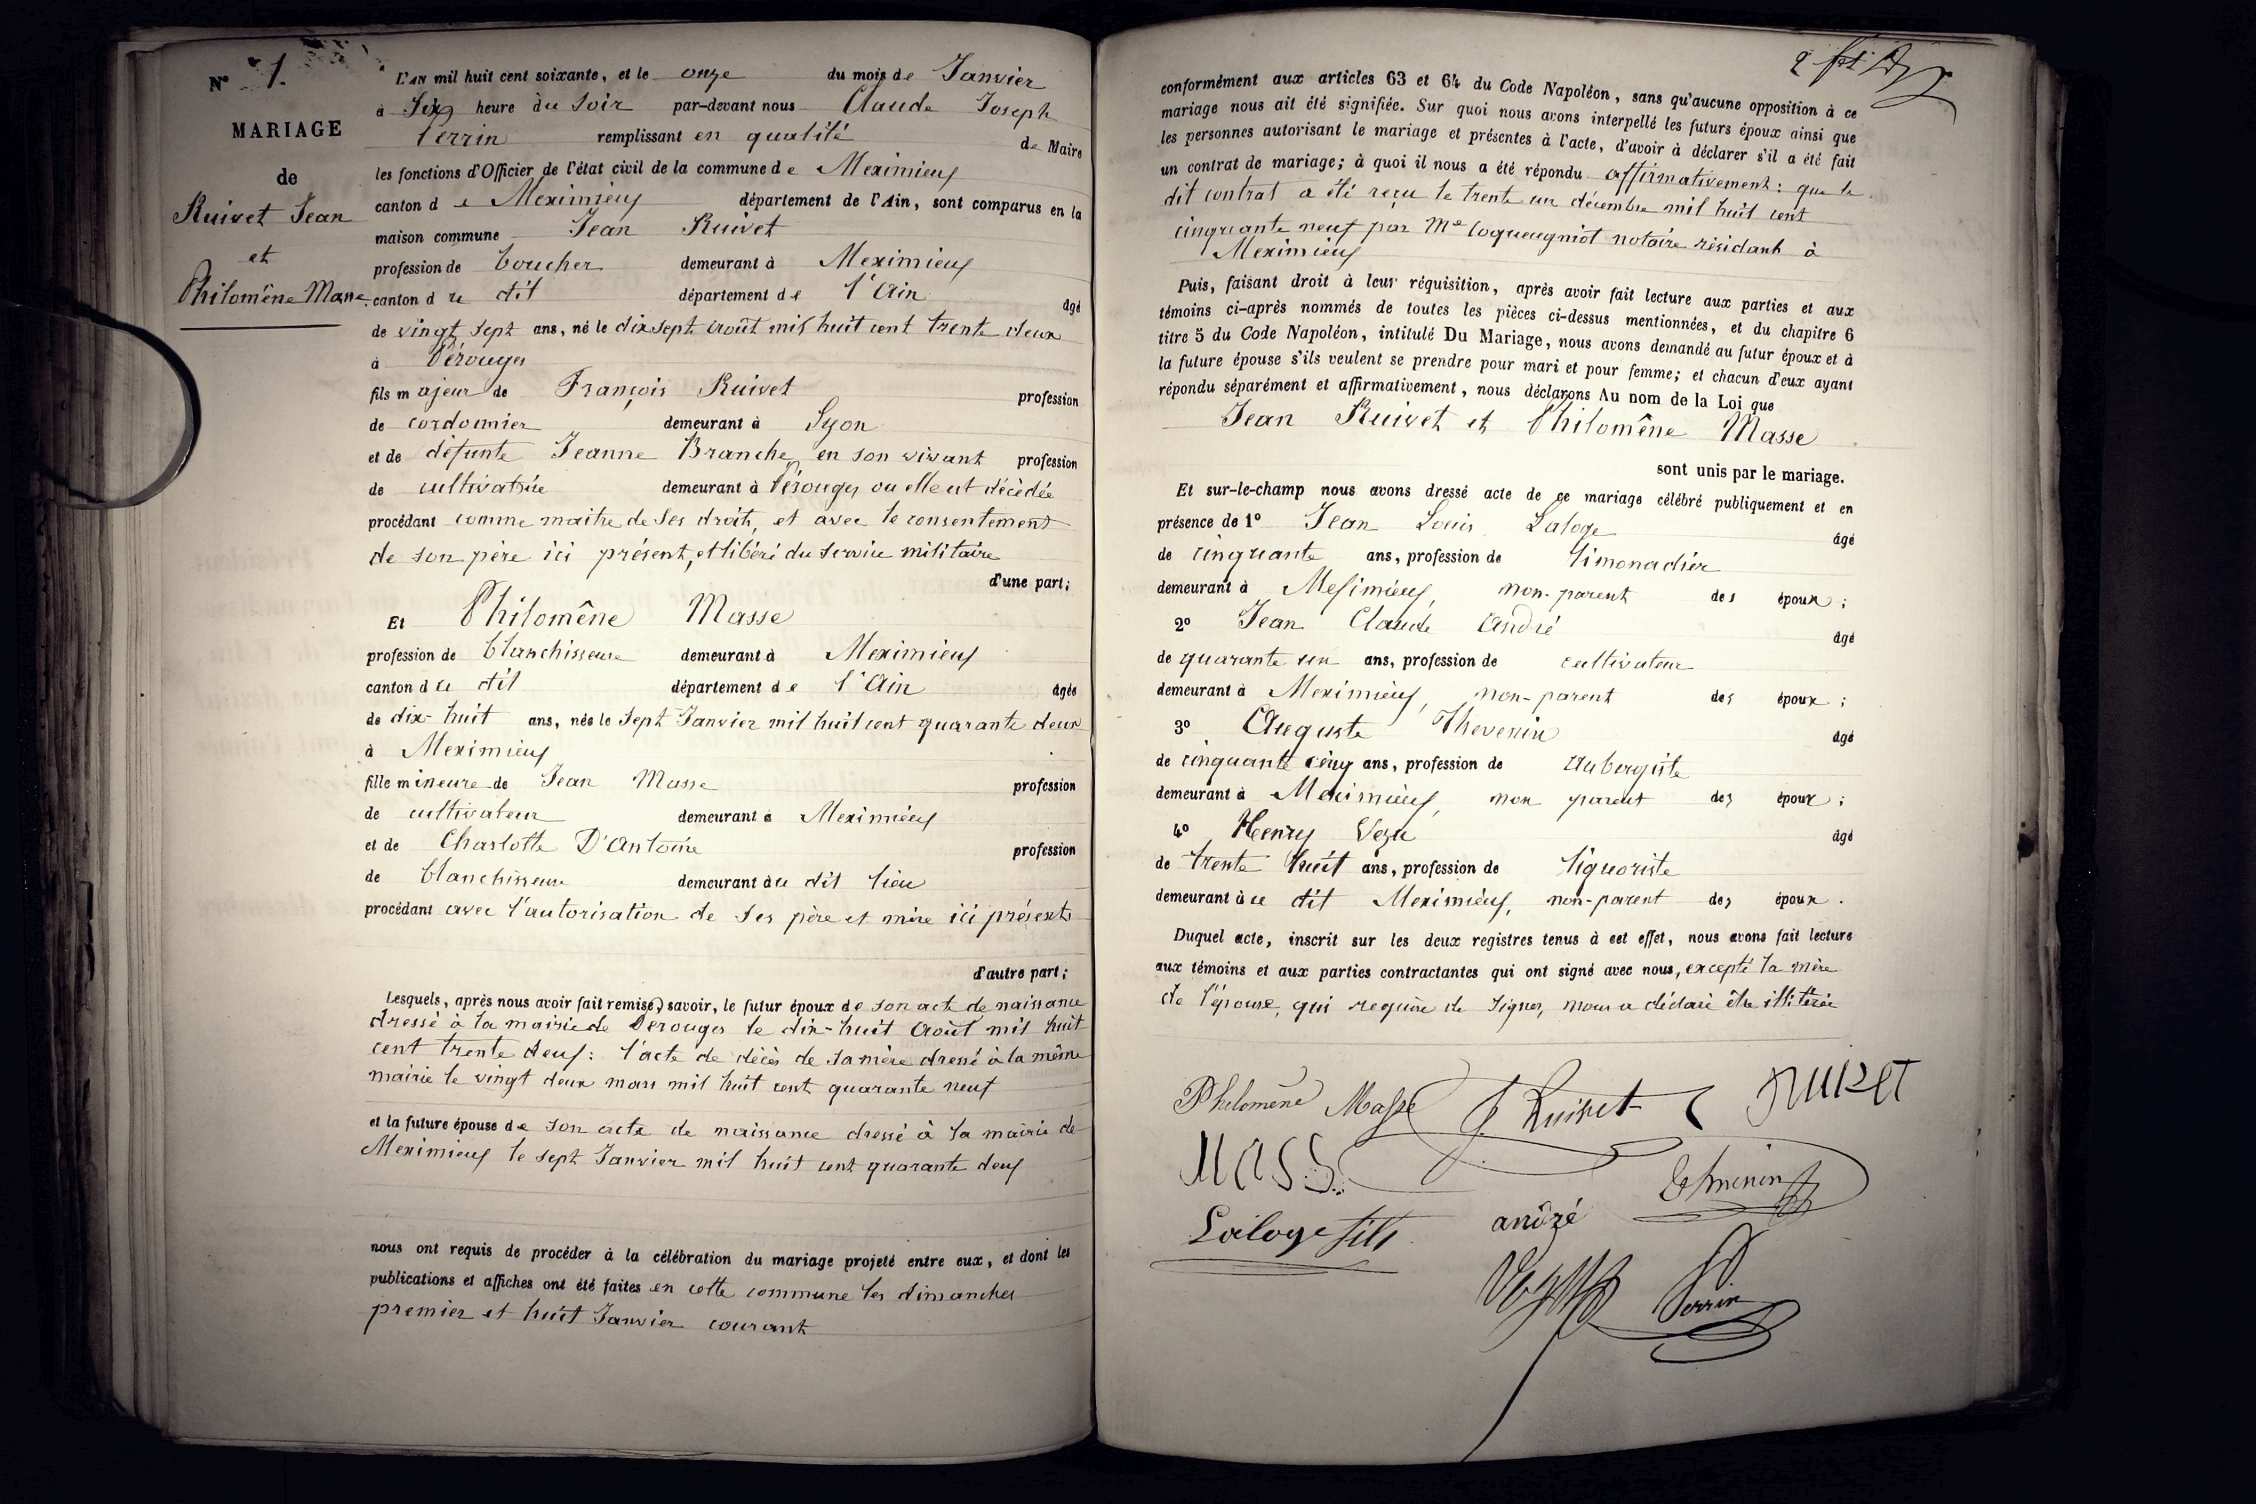 N° 1.
MARIAGE
de
Ruivet Jean
et
Philomène Masse.
L'AN mil huit cent soixante, et le onze du mois de Janvier
à Six heure du Soir par-devant nous Claude Joseph
Perrin remplissant en qualité de Maire
les fonctions d'Officier de l'état civil de la commune de Meximieux
canton de Meximieux département de l'Ain, sont comparus en la
maison commune Jean Ruivet
profession de boucher demeurant à Meximieux
canton du dit département de l'Ain âgé
de vingt sept ans, né le dix sept août mil huit cent trente deux
à Pérouges
fils majeur de François Ruivet profession
de cordonnier demeurant à Lyon
et de défunte Jeanne Branche en son vivant profession
de cultivatrice demeurant à Pérouges ou elle est décédée
procédant comme maitre de ses droits, et avec le consentement
de son père ici présent, et libéré du service militaire
d'une part;
Et Philomène Masse
profession de blanchisseuse demeurant à Meximieux
canton du dit département de l'Ain âgée
de dix-huit ans, née le Sept Janvier mil huit cent quarante deux
à Meximieux
fille mineure de Jean Masse profession
de cultivateur demeurant à Meximieux
et de Charlotte D'Antoine profession
de blanchisseuse demeurant au dit lieu
procédant avec l'autorisation de ses père et mère ici présents
d'autre part;
Lesquels, après nous avoir fait remise, savoir, le futur époux de son acte de naissance
dressé à la mairie de Perouges le dix-huit août mil huit
cent trente deux: l'acte de décès de sa mère dressé à la même
mairie le vingt deux mars mil huit cent quarante neuf
et la future épouse de son acte de naissance dressé à la mairie de
Meximieux le sept Janvier mil huit cent quarante deux
nous ont requis de procéder à la célébration du mariage projeté entre eux, et dont les
publications et affiches ont été faites en cette commune les dimanches
premier et huit Janvier courant
conformément aux articles 63 et 64 du Code Napoléon, sans qu'aucune opposition à ce
mariage nous ait été signifiée. Sur quoi nous avons interpellé les futurs époux ainsi que
les personnes autorisant le mariage et présentes à l'acte, d'avoir à déclarer s'il a été fait
un contrat de mariage; à quoi il nous a été répondu affirmativement: que le
dit contrat a été reçu le trente un décembre mil huit cent
cinquante neuf par Me Coqueugniot notaire résidant à
Meximieux
Puis, faisant droit à leur réquisition, après avoir fait lecture aux parties et aux
témoins ci-après nommés de toutes les pièces ci-dessus mentionnées, et du chapitre 6
titre 5 du Code Napoléon, intitulé Du Mariage, nous avons demandé au futur époux et à
la future épouse s'ils veulent se prendre pour mari et pour femme; et chacun d'eux ayant
répondu séparément et affirmativement, nous déclarons Au nom de la Loi que
Jean Ruivet et Philomène Masse
sont unis par le mariage.
Et sur-le-champ nous avons dressé acte de ce mariage célébré publiquement et en
présence de 1° Jean Louis Laloge âgé
de cinquante ans, profession de limonadier
demeurant à Meximieux, non-parent des époux;
2° Jean Claude André âgé
de quarante un ans, profession de cultivateur
demeurant à Meximieux, non-parent des époux;
3° Auguste Thevenin âgé
de cinquante cinq ans, profession de Aubergiste
demeurant à Meximieux, non parent des époux;
4° Henry Vezu âgé
de trente huit ans, profession de liquoriste
demeurant à ce dit Meximieux, non-parent des époux.
Duquel acte, inscrit sur les deux registres tenus à cet effet, nous avons fait lecture
aux témoins et aux parties contractantes qui ont signé avec nous, excepté la mère
de l'épouse, qui requise de signer, nous a déclaré être illitérée
Philomène Masse J Ruivet RUIVET
MASS
Laloge fils andré
Perrin